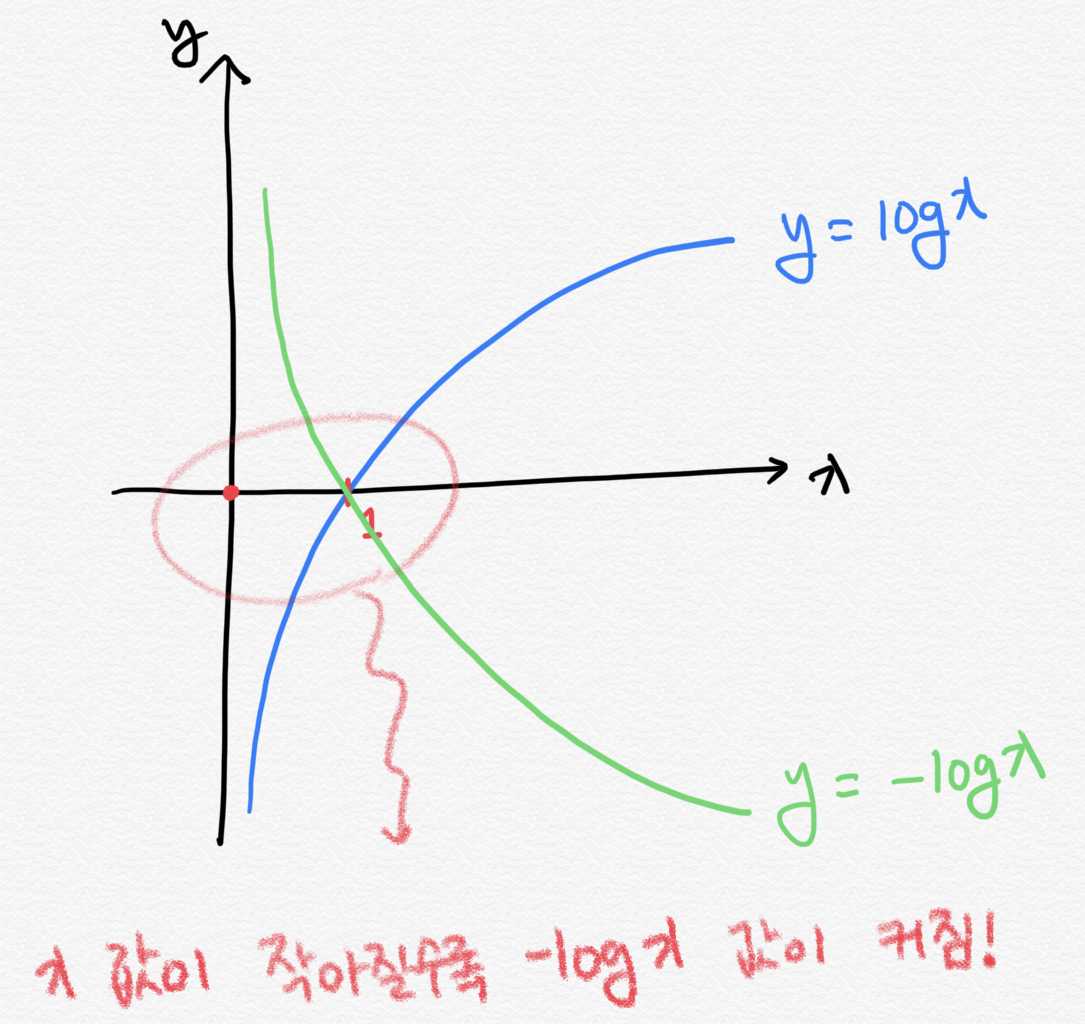 y
y = log x
x
1
y = -log x
x 값이 작아질수록 -log x 값이 커짐!